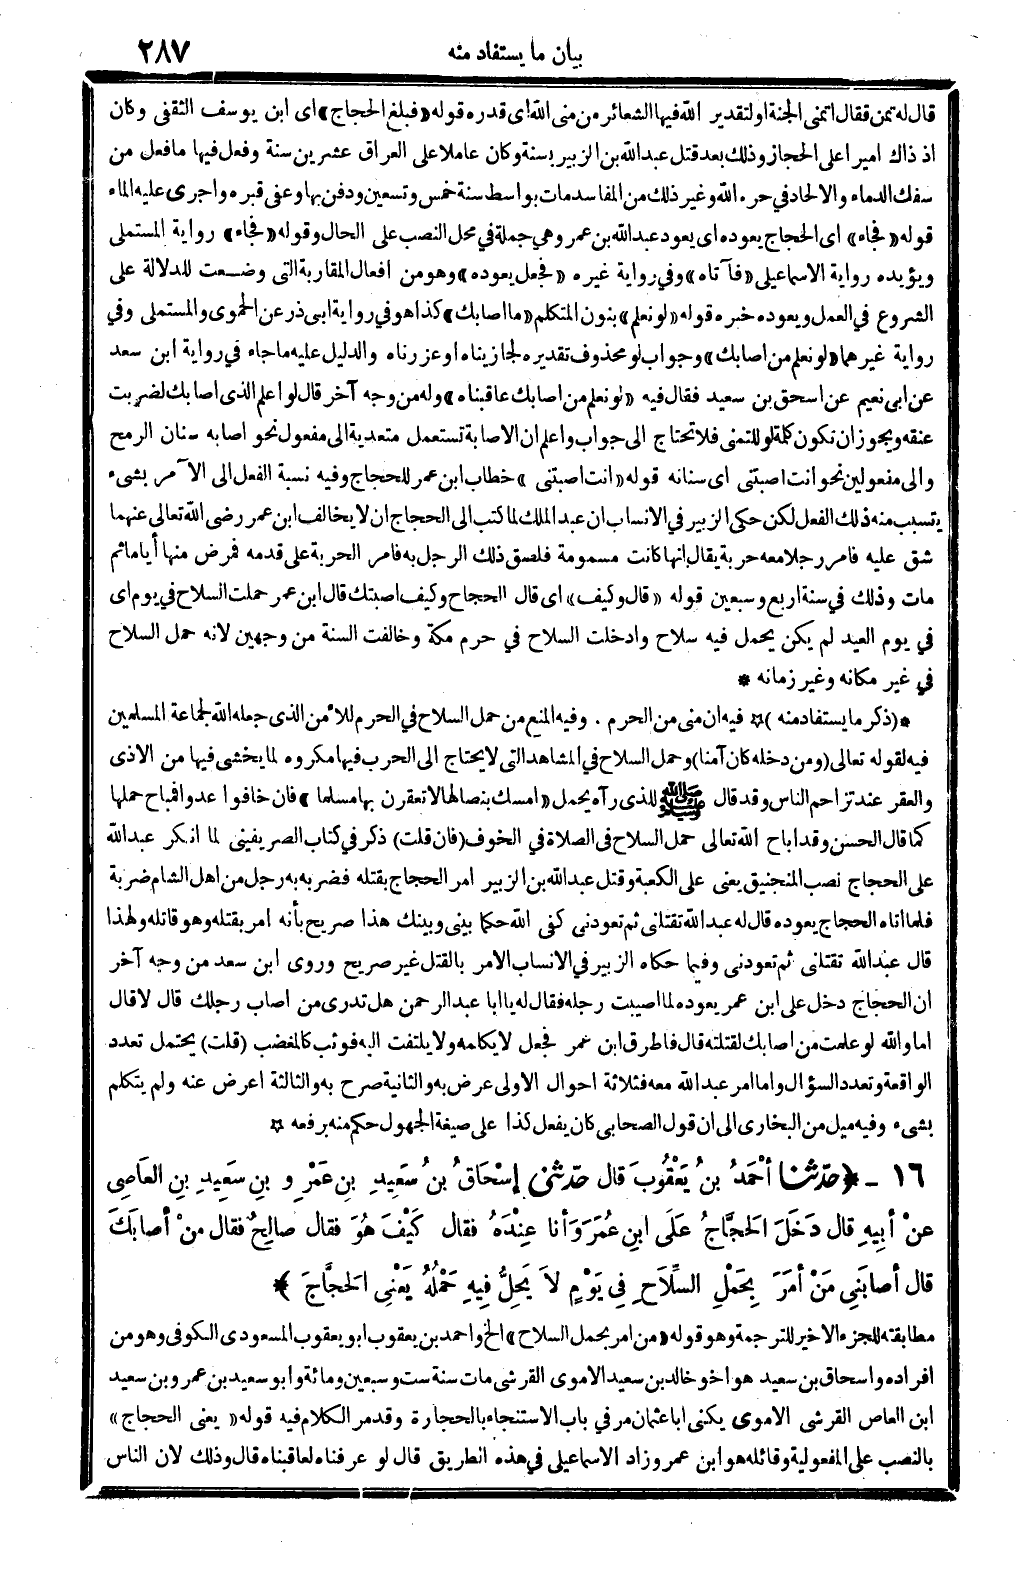 بيان ما يستفاد منه ٢٨٧
قال له تمن فقال اتمنى الجنة او لتقدير الله فيها الشعائر من منى الله أى قدره قوله «فبلغ الحجاج» اى ابن يوسف الثقفى وكان
اذ ذاك اميرا على الحجاز وذلك بعد قتل عبد الله بن الزبير بسنة وكان عاملا على العراق عشرين سنة وفعل فيها ما فعل من
سفك الدماء والالحاد في حرم الله وغير ذلك من المفاسد مات بواسط سنة خمس وتسعين ودفن بها وعفى قبره واجرى عليه الماء
قوله «فجاء» اى الحجاج يعوده اى يعود عبدالله بن عمر وهي جملة في محل النصب على الحال وقوله «فجاء» رواية المستملى
ويؤيده رواية الاسماعيلى «فآتاه» وفي رواية غيره «فجعل يعوده» وهو من افعال المقاربة التى وضعت للدلالة على
الشروع في العمل ويعوده خبره قوله «لو نعلم» بنون المتكلم «ما اصابك» كذا هو في رواية ابى ذر عن الحموى والمستملى وفي
رواية غيرهما «لو نعلم من اصابك» وجواب لو محذوف تقديره لجازيناه او عزرناه والدليل عليه ما جاء في رواية ابن سعد
عن ابى نعيم عن اسحق بن سعيد فقال فيه «لو نعلم من اصابك عاقبناه» وله من وجه آخر قال لو اعلم الذى اصابك لضربت
عنقه ويجوز ان تكون كلمة لو للتمنى فلا تحتاج الى جواب واعلم ان الاصابة تستعمل متعدية الى مفعول نحو اصابه سنان الرمح
والى مفعولين نحو انت اصبتنى اى سنانه قوله «انت اصبتنى» خطاب ابن عمر للحجاج وفيه نسبة الفعل الى الآمر بشىء
يتسبب منه ذلك الفعل لكن حكى الزبير في الانساب ان عبد الملك لما كتب الى الحجاج ان لا يخالف ابن عمر رضى الله تعالى عنهما
شق عليه فامر رجلا معه حربة يقال انها كانت مسمومة فلصق ذلك الرجل به فامر الحربة على قدمه فمرض منها أياما ثم
مات وذلك في سنة اربع وسبعين قوله «قال وكيف» اى قال الحجاج وكيف اصبتك قال ابن عمر حملت السلاح في يوم اى
في يوم العيد لم يكن يحمل فيه سلاح وادخلت السلاح في حرم مكة وخالفت السنة من وجهين لانه حمل السلاح
في غير مكانه وغير زمانه *
*(ذكر ما يستفاد منه)* فيه ان منى من الحرم . وفيه المنع من حمل السلاح في الحرم للأمن الذى جعله الله لجماعة المسلمين
فيه لقوله تعالى (ومن دخله كان آمنا) وحمل السلاح في المشاهد التى لا يحتاج الى الحرب فيها مكروه لما يخشى فيها من الاذى
والعقر عند تزاحم الناس وقد قال ﷺ للذى رآه يحمل «امسك بنصالها لا تعقرن بها مسلما» فان خافوا عدوا فباح حملها
كما قال الحسن وقد اباح الله تعالى حمل السلاح فى الصلاة في الخوف (فان قلت) ذكر في كتاب الصريفينى لما انكر عبدالله
على الحجاج نصب المنجنيق يعنى على الكعبة وقتل عبد الله بن الزبير امر الحجاج بقتله فضربه به رجل من اهل الشام ضربة
فلما اتاه الحجاج يعوده قال له عبد الله تقتلنى ثم تعودنى كفى الله حكما بينى وبينك هذا صريح بأنه امر بقتله وهو قاتله ولهذا
قال عبدالله تقتلنى ثم تعودنى وفيما حكاه الزبير في الانساب الامر بالقتل غير صريح وروى ابن سعد من وجه آخر
ان الحجاج دخل على ابن عمر يعوده لما اصيبت رجله فقال له يا ابا عبد الرحمن هل تدرى من اصاب رجلك قال لا قال
اما والله لو علمت من اصابك لقتلته قال فاطرق ابن عمر فجعل لا يكلمه ولا يلتفت اليه فوثب كالمغضب (قلت) يحتمل تعدد
الواقعة وتعدد السؤال واما امر عبد الله معه فثلاثة احوال الاولى عرض به والثانية صرح به والثالثة اعرض عنه ولم يتكلم
بشىء وفيه ميل من البخارى الى ان قول الصحابى كان يفعل كذا على صيغة المجهول حكم منه برفعه *
١٦ - ﴿حدّثنا أحْمَدُ بنُ يَعْقُوبَ قال حدّثنى إسْحَاقُ بنُ سَعِيدِ بنِ عَمْرٍ و بنِ سَعِيدِ بنِ العَاصِى
عنْ أبيهِ قال دَخَلَ الحَجَّاجُ عَلَى ابنِ عُمَرَ وَأنا عِنْدَهُ فقال كَيْفَ هُوَ فقال صالِحٌ فقال منْ أصابَكَ
قال أصابَنِى مَنْ أمَرَ بِحَمْلِ السِّلاَحِ فِى يَوْمٍ لاَ يَحِلُّ فِيهِ حَمْلُهُ يَعْنِى الحَجَّاجَ﴾ *
مطابقته للجزء الاخير للترجمة وهو قوله «من امر بحمل السلاح» الخ واحمد بن يعقوب ابو يعقوب المسعودى الكوفى وهو من
افراده واسحاق بن سعيد هو اخو خالد بن سعيد الاموى القرشى مات سنة ست وسبعين ومائة وابو سعيد بن عمرو بن سعيد
ابن العاص القرشى الاموى يكنى ابا عثمان مر في باب الاستنجاء بالحجارة وقد مر الكلام فيه قوله «يعنى الحجاج»
بالنصب على المفعولية وقائله هو ابن عمر وزاد الاسماعيلى في هذه الطريق قال لو عرفناه لعاقبناه قال وذلك لان الناس